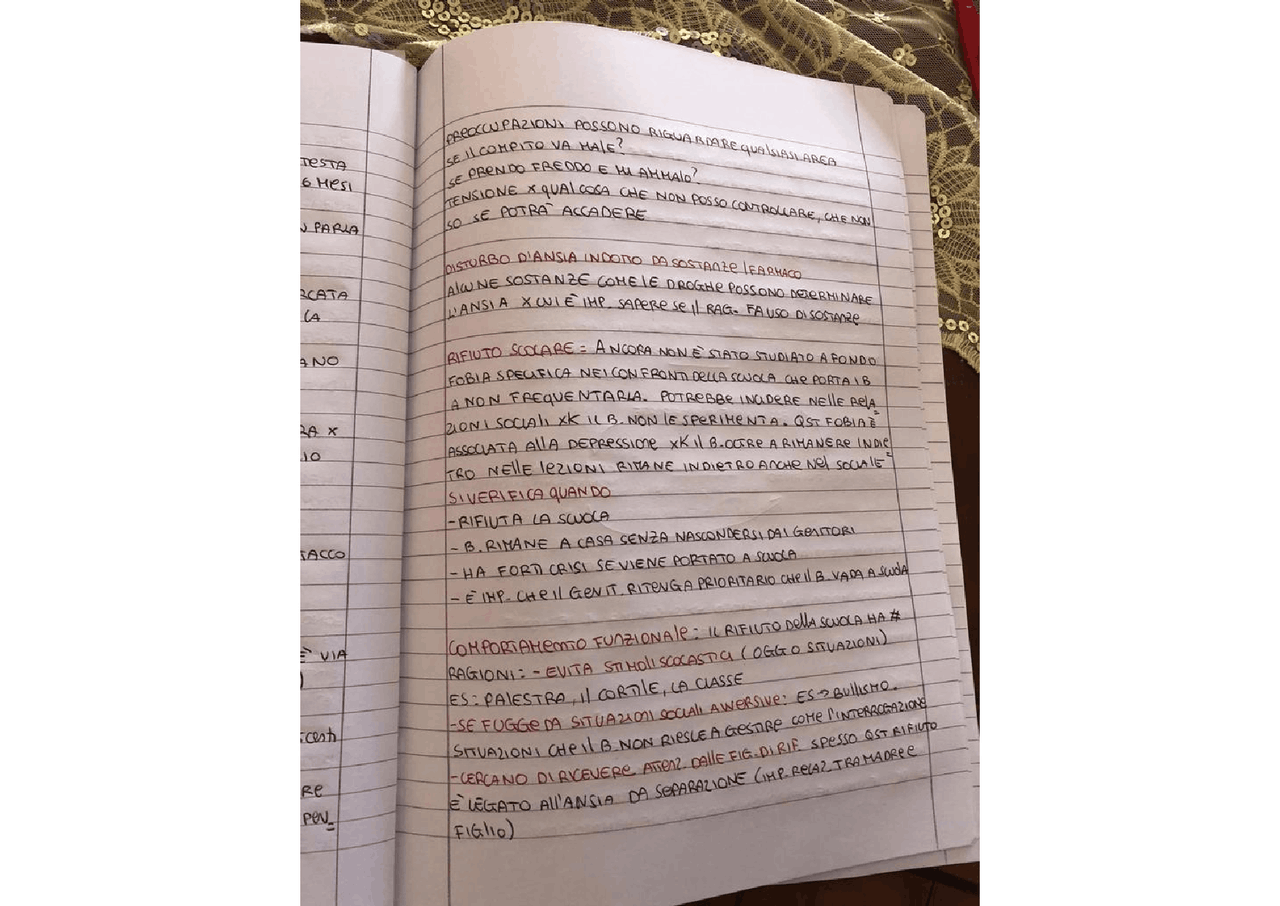 TESTA
6 MESI
PARLA
RCATA
LA
ANO
RA X
LIO
TACCO
È VIA
)
RE
PEN_
PREOCCUPAZIONI POSSONO RIGUARDARE QUALSIASI AREA
SE IL COMPITO VA MALE?
SE PRENDO FREDDO E MI AMMALO?
TENSIONE X QUALCOSA CHE NON POSSO CONTROLLARE, CHE NON
SO SE POTRA' ACCADERE
DISTURBO D'ANSIA INDOTTO DA SOSTANZE/FARMACO
ALCUNE SOSTANZE COME LE DROGHE POSSONO DETERMINARE
L'ANSIA X CUI È IMP. SAPERE SE IL RAG. FA USO DI SOSTANZE
RIFIUTO SCOLARE = ANCORA NON È STATO STUDIATO A FONDO
FOBIA SPECIFICA NEI CONFRONTI DELLA SCUOLA CHE PORTA I B
A NON FREQUENTARLA. POTREBBE INCIDERE NELLE RELA=
ZIONI SOCIALI XK IL B. NON LE SPERIMENTA. QST FOBIA È
ASSOCIATA ALLA DEPRESSIONE XK IL B. OLTRE A RIMANERE INDIE=
TRO NELLE LEZIONI RIMANE INDIETRO ANCHE NEL SOCIALE
SI VERIFICA QUANDO
- RIFIUTA LA SCUOLA
- B. RIMANE A CASA SENZA NASCONDERSI DAI GENITORI
- HA FORTI CRISI SE VIENE PORTATO A SCUOLA
- È IMP. CHE IL GENIT. RITENGA PRIORITARIO CHE IL B. VADA A SCUOLA
COMPORTAMENTO FUNZIONALE: IL RIFIUTO DELLA SCUOLA HA ≠
RAGIONI: - EVITA STIMOLI SCOLASTICI (OGG O SITUAZIONI)
ES: PALESTRA, IL CORTILE, LA CLASSE
- SE FUGGE DA SITUAZIONI SOCIALI AVVERSIVE: ES → BULLISMO.
SITUAZIONI CHE IL B. NON RIESCE A GESTIRE COME L'INTERROGAZIONE
- CERCANO DI RICEVERE ATTENZ. DALLE FIG. DI RIF. SPESSO QST RIFIUTO
È LEGATO ALL'ANSIA DA SEPARAZIONE (IMP. RELAZ. TRA MADRE E
FIGLIO)